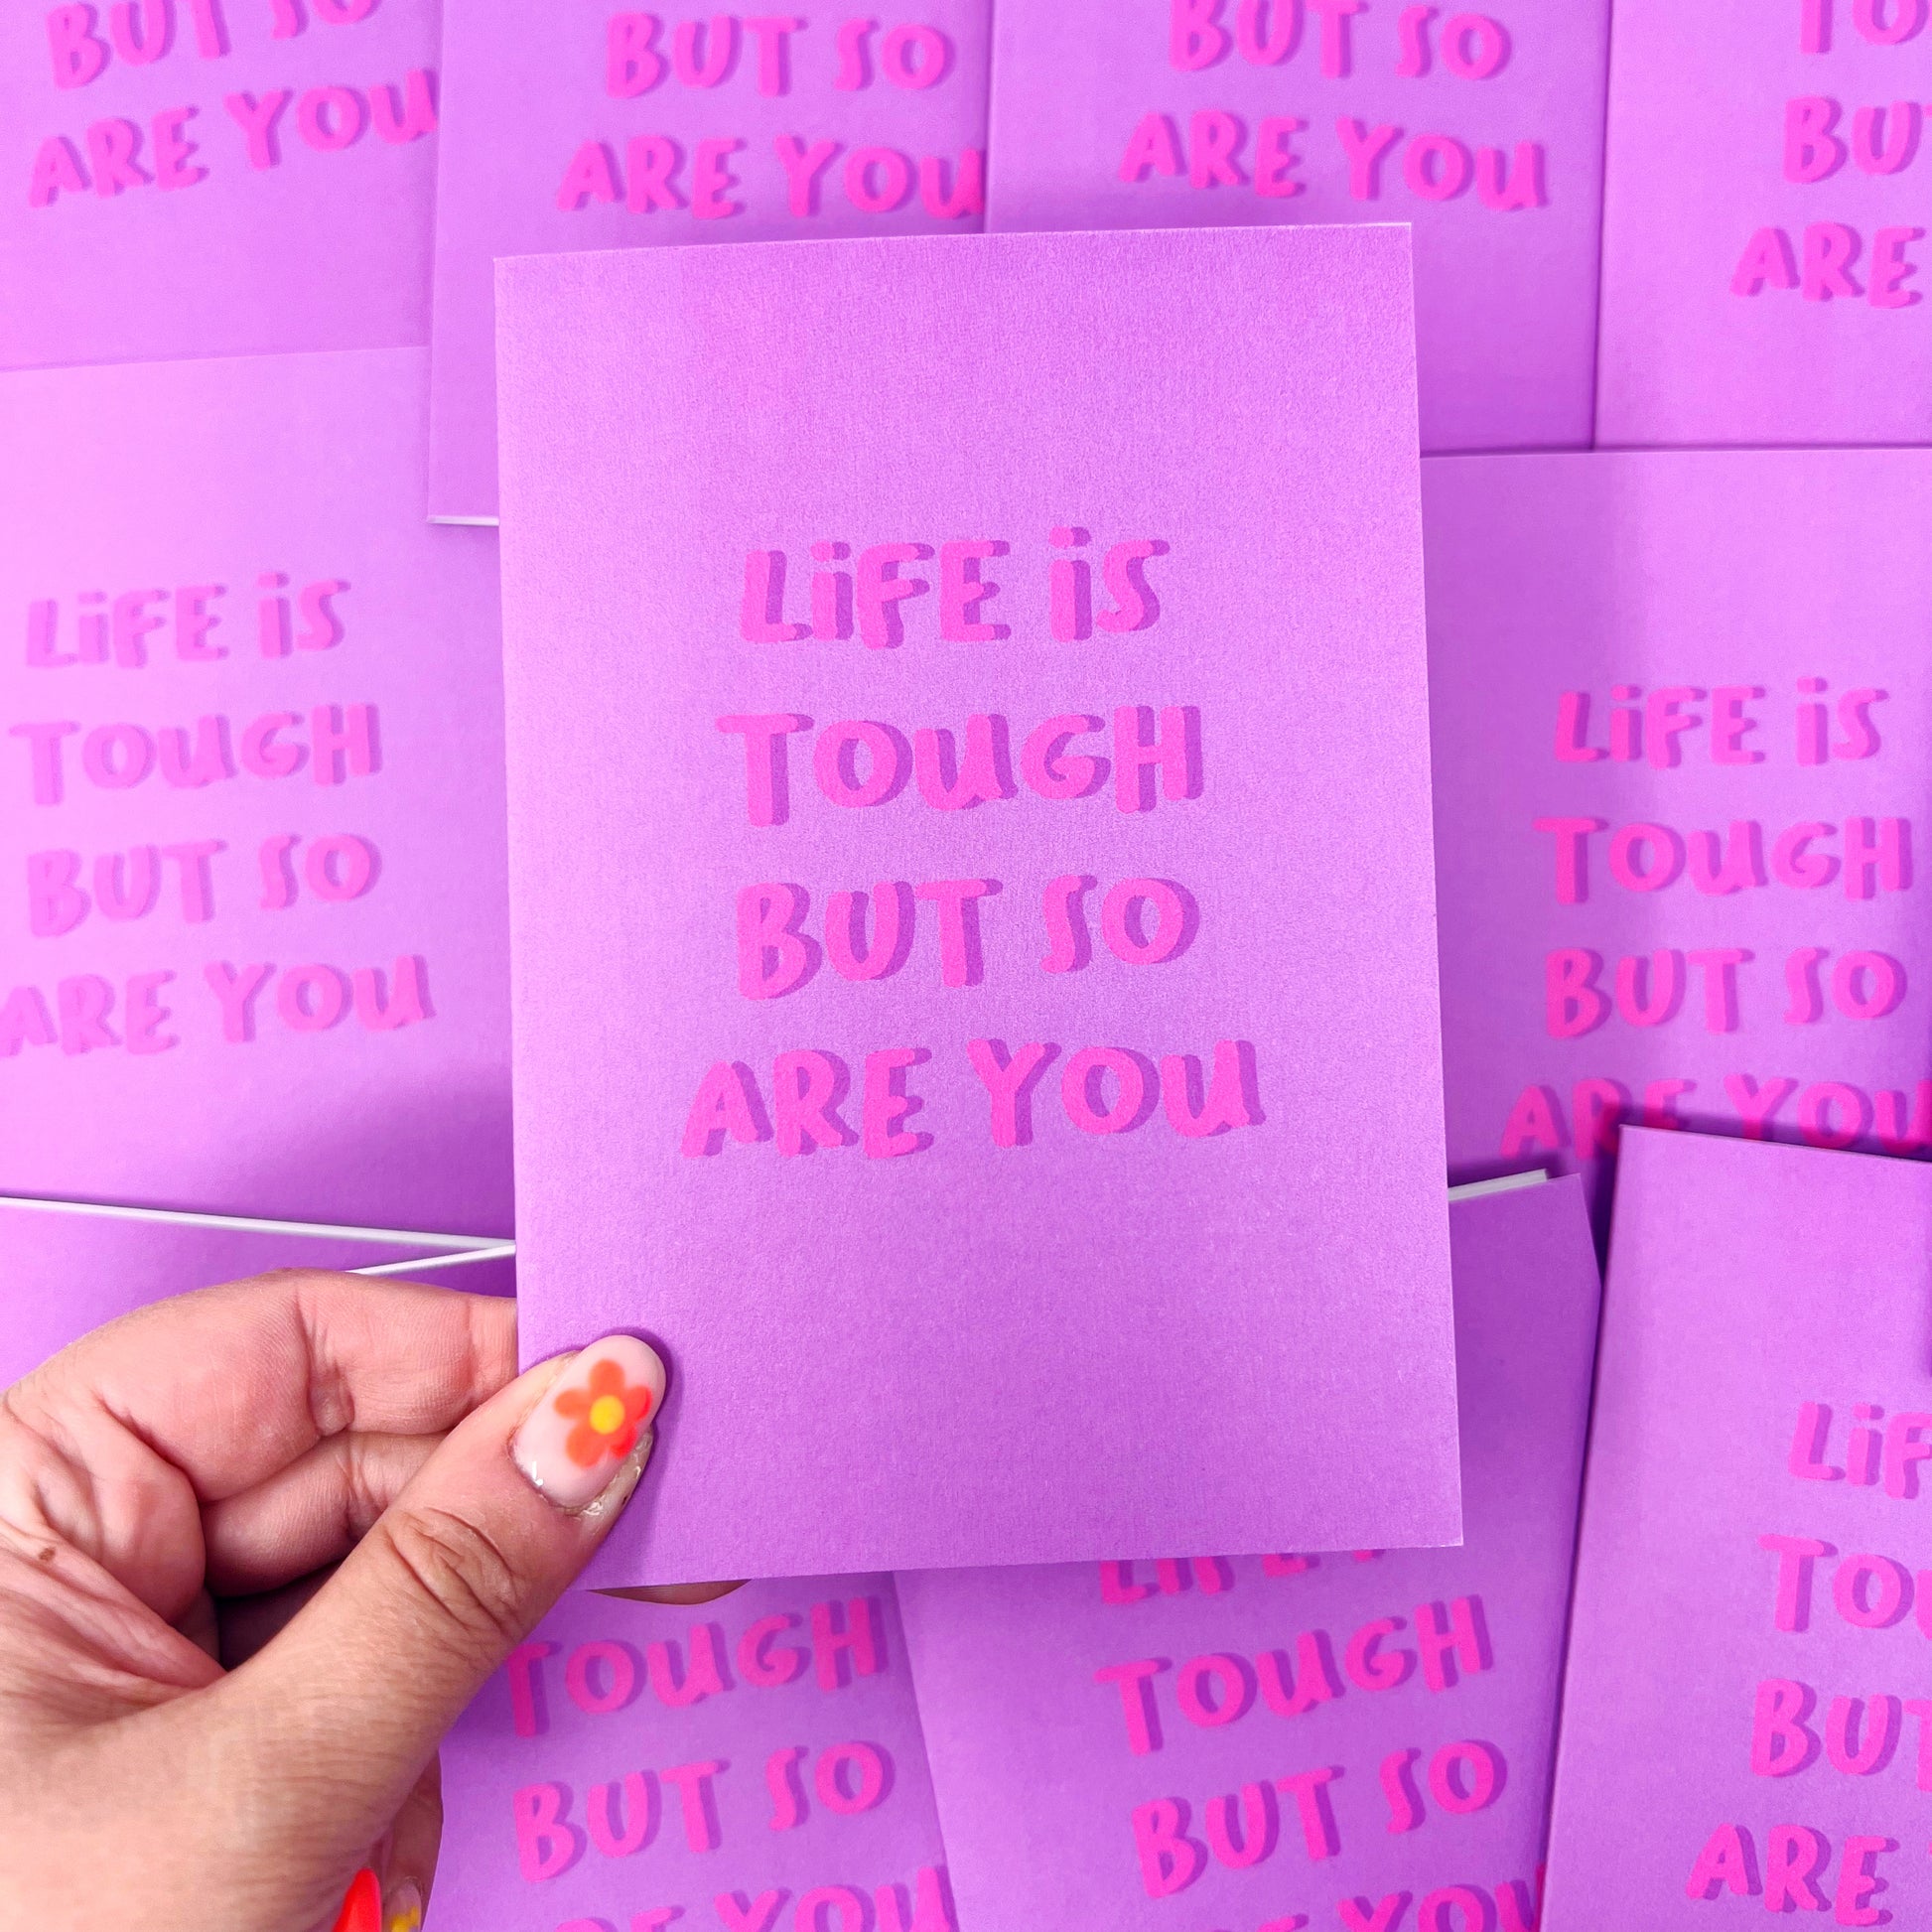 BUT SO
ARE YOU
BUT SO
ARE YOU
BUT SO
ARE YOU
ARE
LiFE iS
TOUGH
BUT SO
ARE YOU
LiFE iS
TOUGH
BUT SO
ARE YOU
LiFE iS
TOUGH
BUT SO
ARE YOU
TOUGH
BUT SO
ARE YOU
TOUGH
BUT SO
ARE YOU
ARE